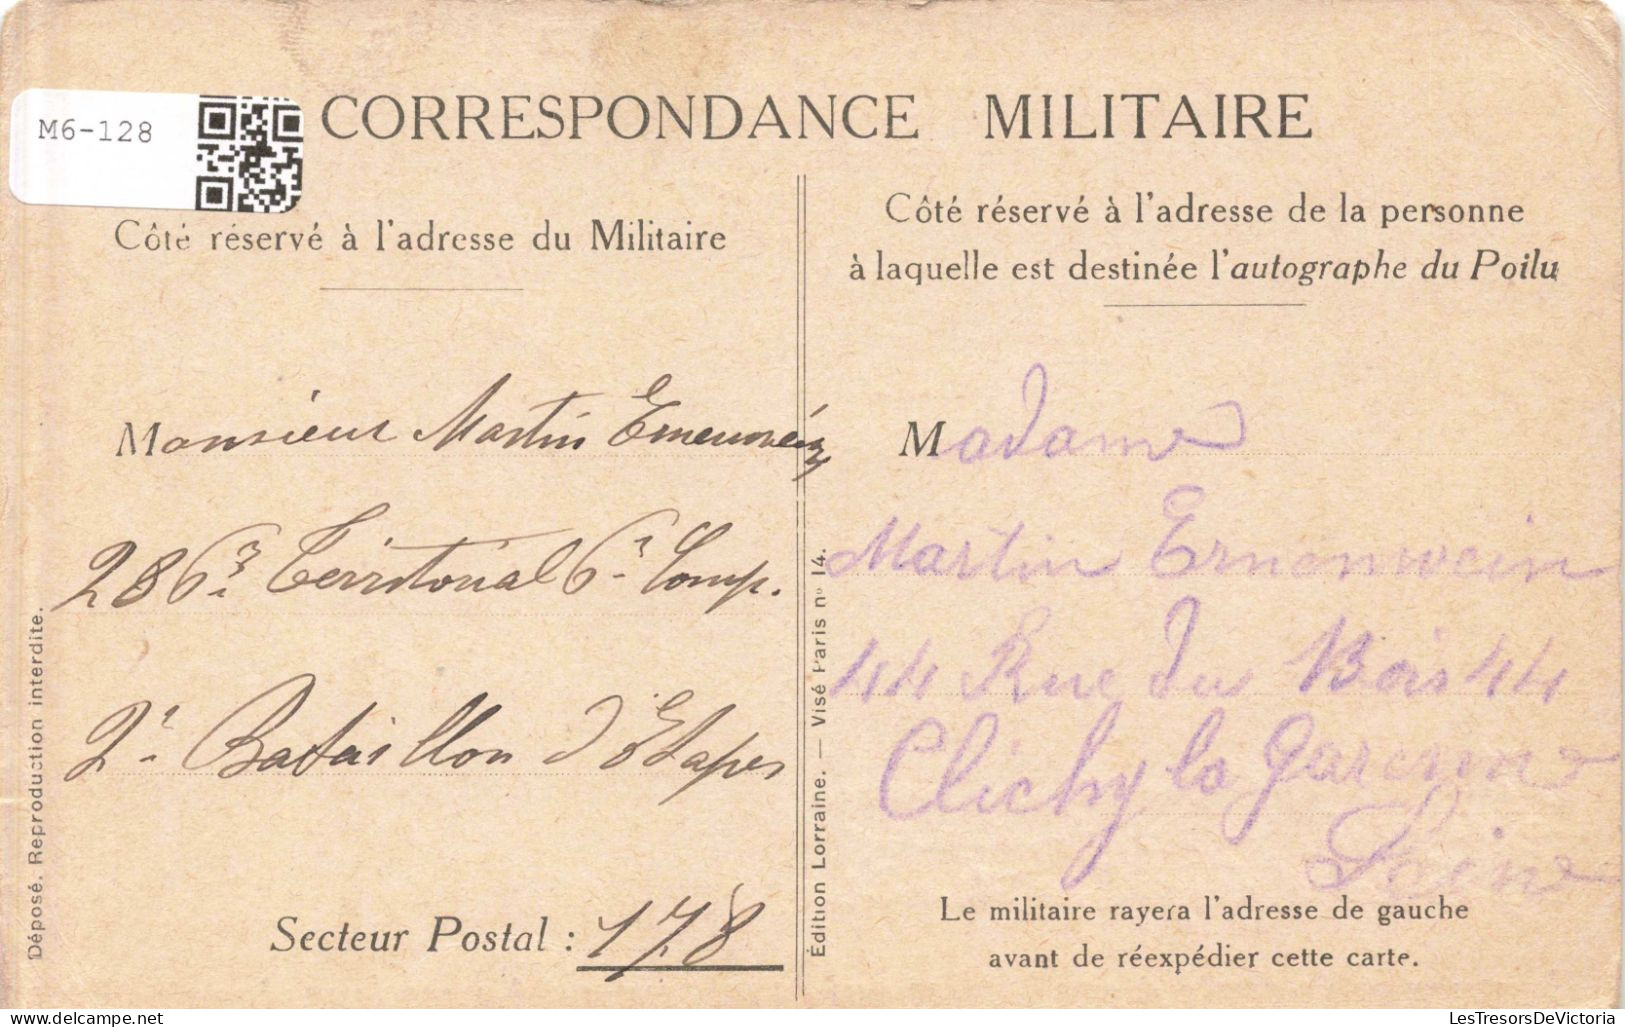 M6-128
CORRESPONDANCE MILITAIRE
Côté réservé à l'adresse du Militaire
Monsieur Martin Ernenwein
286e Territorial 6e Comp.
2e Bataillon d'Etapes
Secteur Postal : 178
Déposé. Reproduction interdite.
Édition Lorraine. — Visé Paris nº 14.
Côté réservé à l'adresse de la personne
à laquelle est destinée l'autographe du Poilu
Madame
Martin Ernenwein
44 Rue du Bois 44
Clichy la Garenne
Seine
Le militaire rayera l'adresse de gauche
avant de réexpédier cette carte.
delcampe.net
LesTresorsDeVictoria